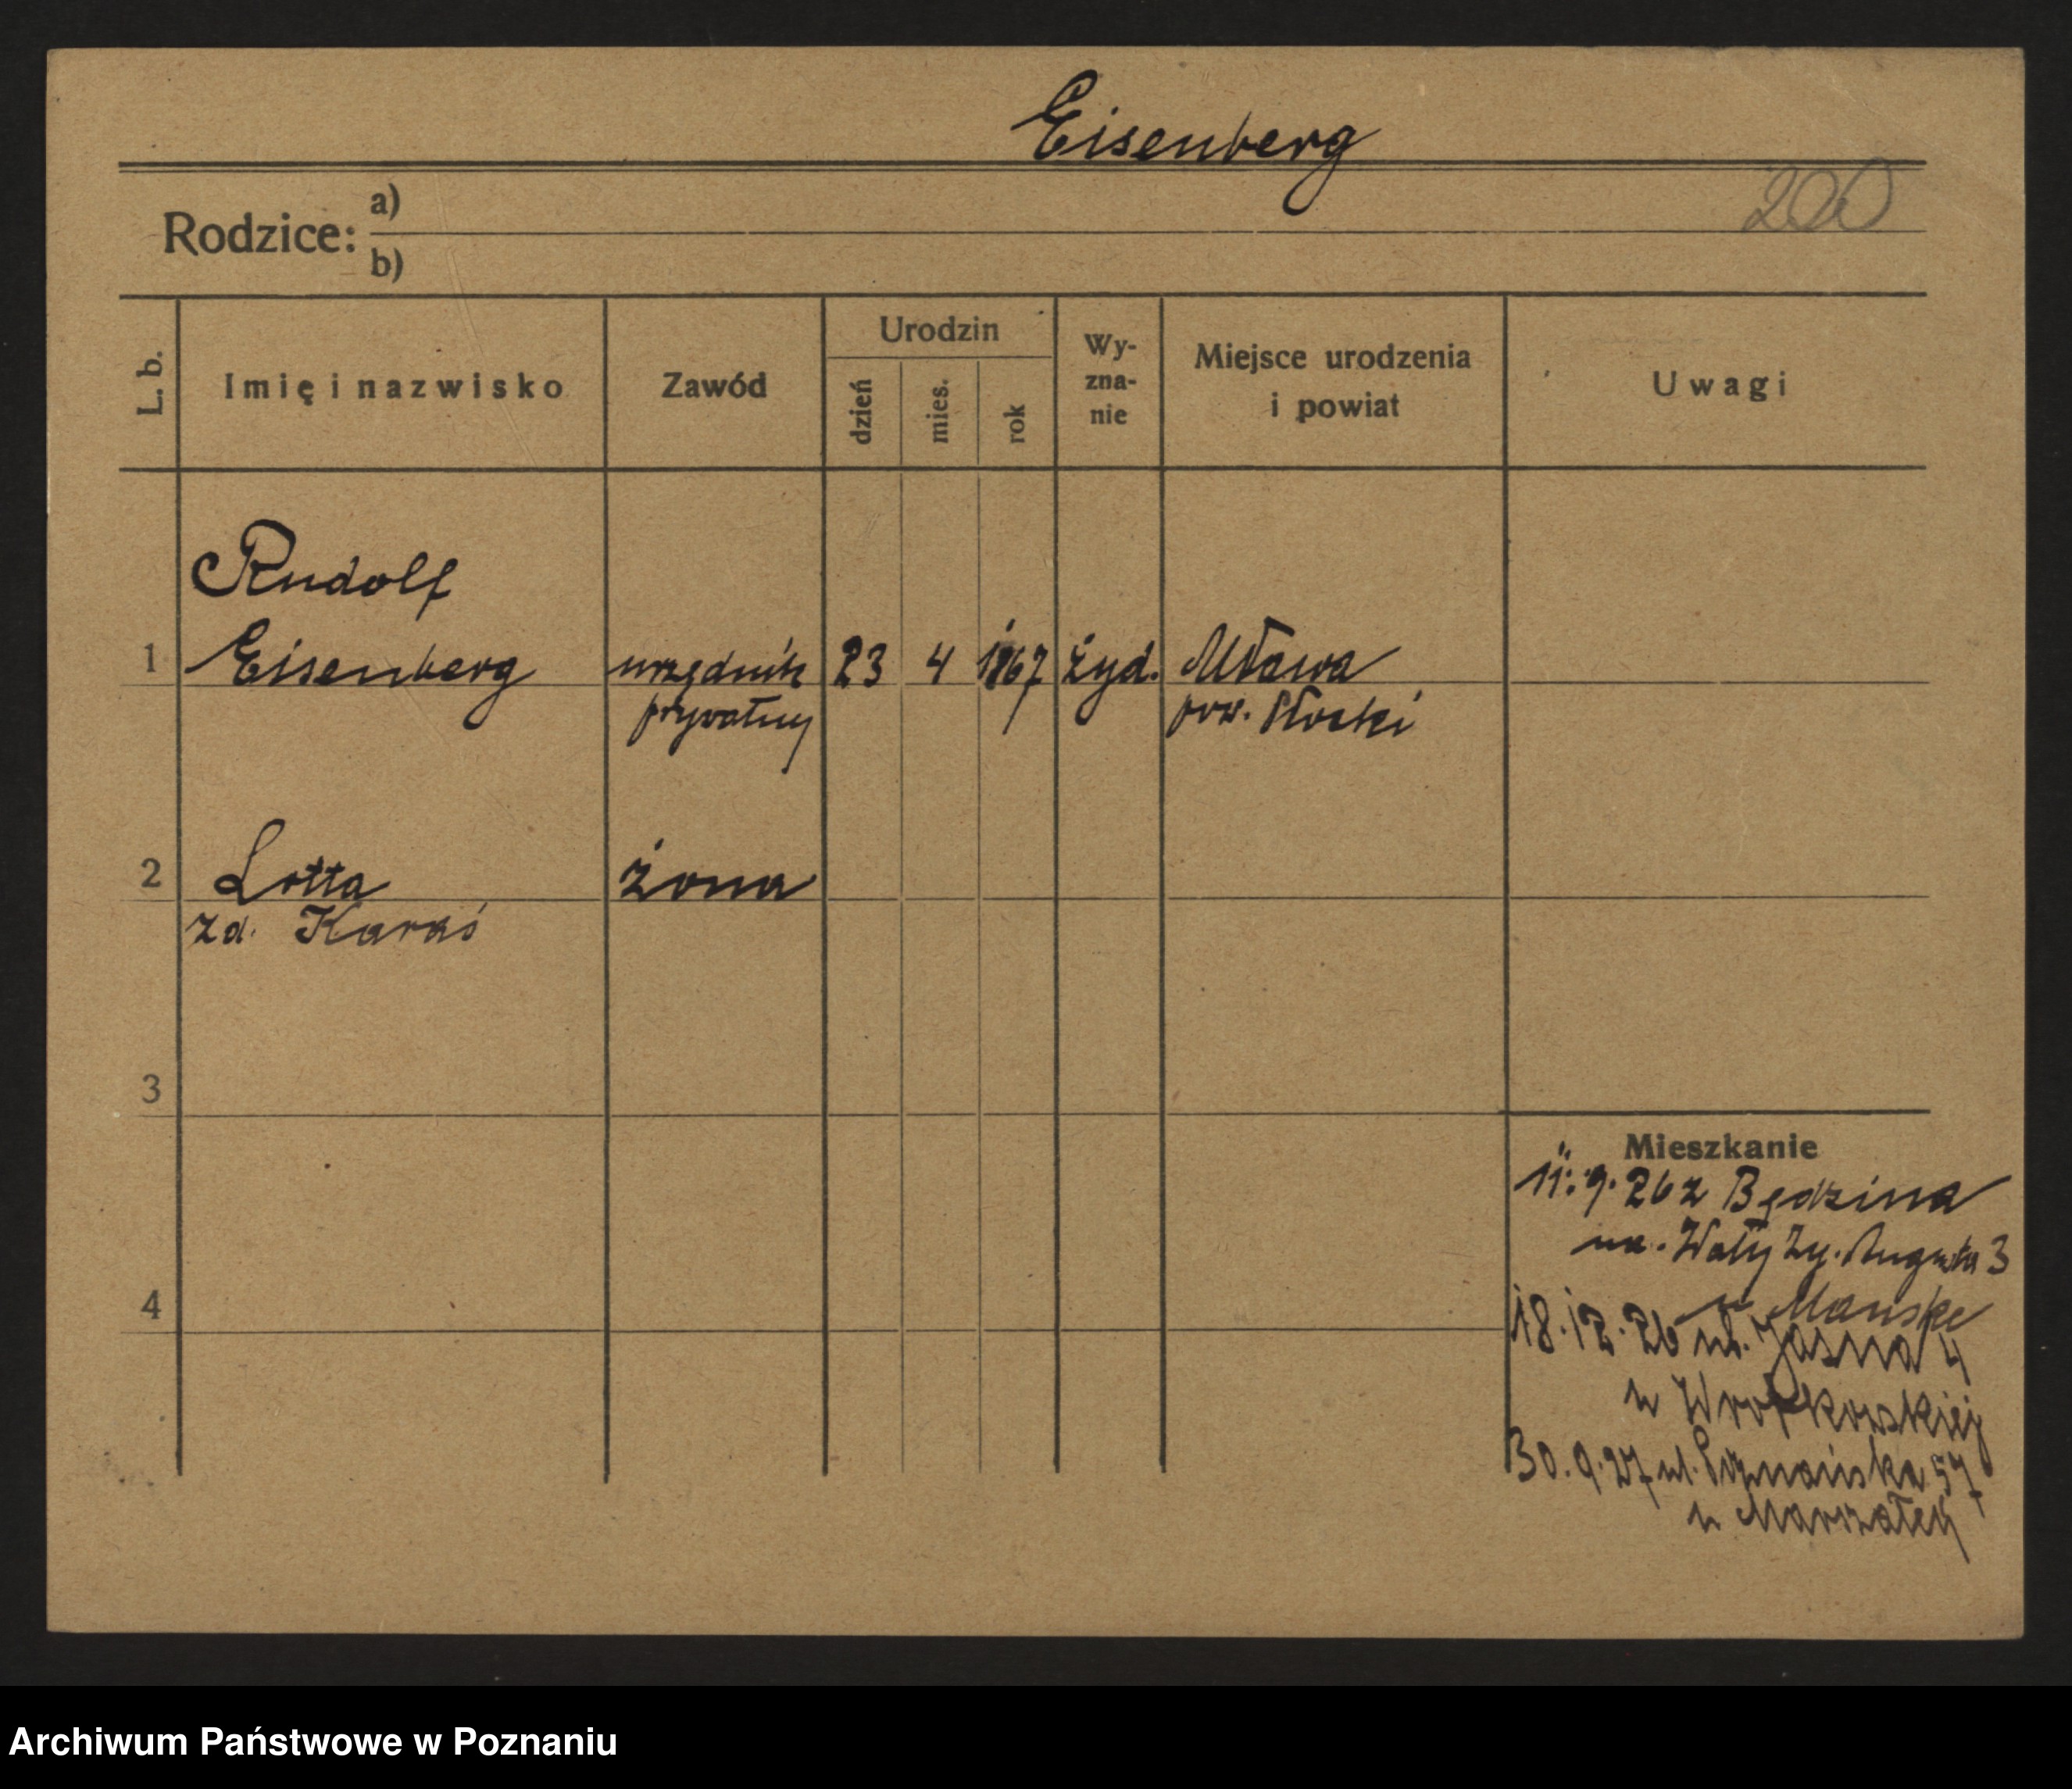 Eisenberg
200
Rodzice: a)
b)
L. b.
Imię i nazwisko
Zawód
Urodzin
dzień
mies.
rok
Wy-
zna-
nie
Miejsce urodzenia
i powiat
Uwagi
Rudolf
1 Eisenberg urzędnik 23 4 1867 żyd. Mława
prywatny pow. Płocki
2 Lotta żona
zd. Karaś
3
Mieszkanie
11.9.26 z Będzina
na. Wały Zy. Augusta 3
u Manske
4
18.12.26 ul. Jasna 4
u
30.9.27 ul. Poznańska 57
u Marszałek
Archiwum Państwowe w Poznaniu